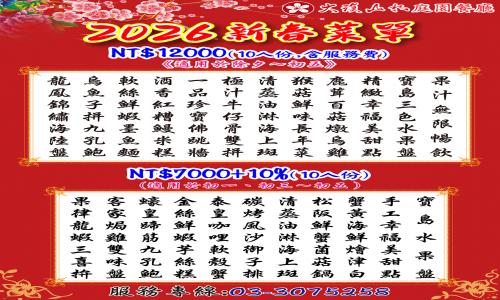 2026新春菜單
NT$12000(10人份,含服務費)
《適用於除夕～初五》
龍鳳錦繡海陸盤
烏魚子九孔鮑
軟絲鮮蝦墨魚麵
酒香紅糟鰻米糕
一品珍寶佛跳牆
極汁牛仔骨拼
清蒸油淋海上斑
猴菇鮮味長年菜
鹿茸百菇燉烏雞
精緻幸福美甜點
寶島三色水果盤
果汁無限暢飲
NT$7000+10%(10人份)
(適用於初一、初三～初五)
果律龍蝦三喜拚
客家焗雞雙味盤
蠔皇蹄筋九孔鮑
金絲鮮蝦芋絲糕
泰皇咖哩軟殼蟹
碳烤風沙子排
清蒸油淋海上斑
松阪鮮蟹菌菇鍋
蟹黃海鮮燴雙白
手工幸福美甜點
寶島水果盤
服務專線:03-3075258